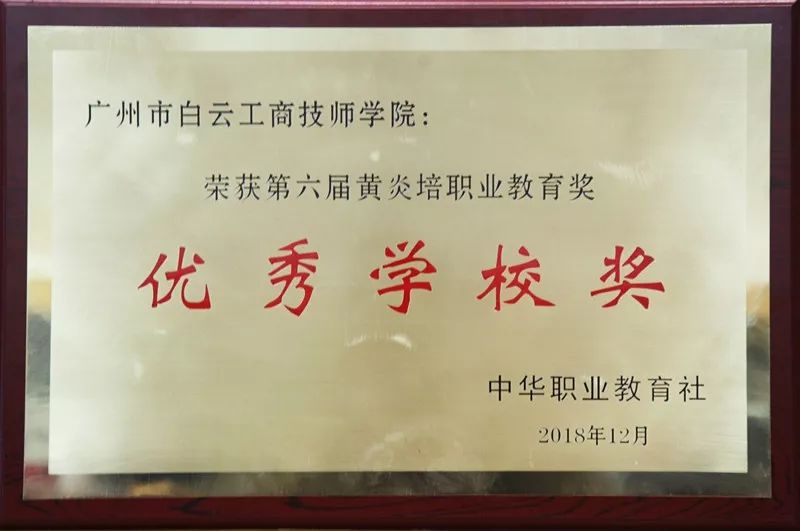 广州市白云工商技师学院：
荣获第六届黄炎培职业教育奖
优秀学校奖
中华职业教育社
2018年12月